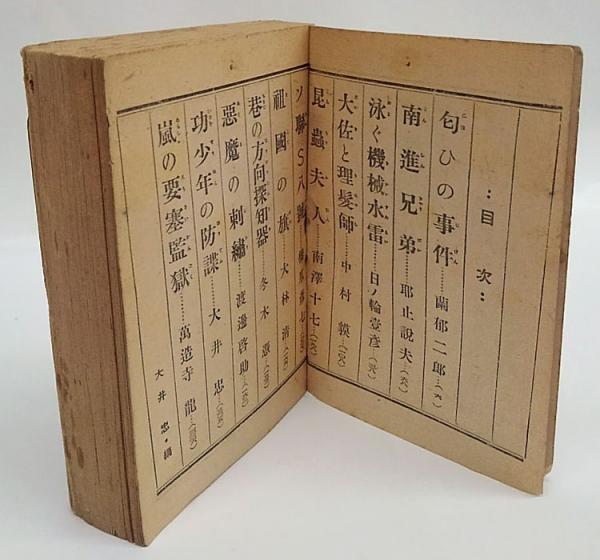 ：目次：
匂ひの事件……蘭郁二郎…(六)
南進兄弟……耶止說夫…
泳ぐ機械水雷……日ノ輪壹彥
大佐と理髮師……中村獏
昆蟲夫人……南澤十七
ソ聯S八號
祖國の旗 大林淸
巷の方向探知器……冬木
惡魔の刺繡……渡邊啓助
功少年の防諜……大井忠
嵐の要塞監獄……萬造寺龍
大井忠・編